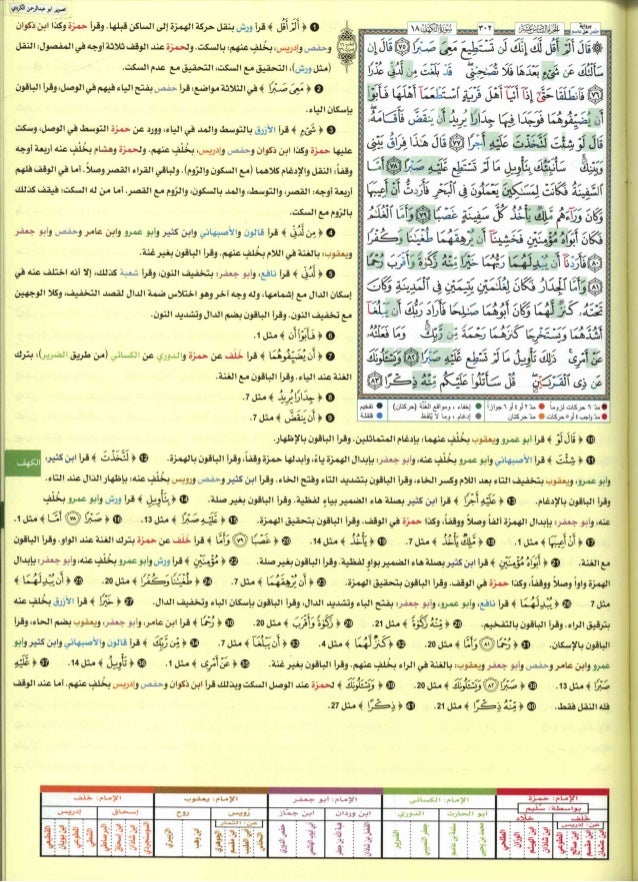 تصوير ابو عبدالرحمن الكردي
سُورَةُ الكَهْفِ ١٨
٣٠٢
الجزء السادس عشر
۞ قَالَ أَلَمْ أَقُل لَّكَ إِنَّكَ لَن تَسْتَطِيعَ مَعِيَ صَبْرًا ٧٥ قَالَ إِن
سَأَلْتُكَ عَن شَيْءٍ بَعْدَهَا فَلَا تُصَٰحِبْنِي ۖ قَدْ بَلَغْتَ مِن لَّدُنِّي عُذْرًا
٧٦ فَٱنطَلَقَا حَتَّىٰٓ إِذَآ أَتَيَآ أَهْلَ قَرْيَةٍ ٱسْتَطْعَمَآ أَهْلَهَا فَأَبَوْا۟
أَن يُضَيِّفُوهُمَا فَوَجَدَا فِيهَا جِدَارًا يُرِيدُ أَن يَنقَضَّ فَأَقَامَهُۥ ۖ
قَالَ لَوْ شِئْتَ لَتَّخَذْتَ عَلَيْهِ أَجْرًا ٧٧ قَالَ هَٰذَا فِرَاقُ بَيْنِي
وَبَيْنِكَ ۚ سَأُنَبِّئُكَ بِتَأْوِيلِ مَا لَمْ تَسْتَطِع عَّلَيْهِ صَبْرًا ٧٨ أَمَّا
ٱلسَّفِينَةُ فَكَانَتْ لِمَسَٰكِينَ يَعْمَلُونَ فِي ٱلْبَحْرِ فَأَرَدتُّ أَنْ أَعِيبَهَا
وَكَانَ وَرَآءَهُم مَّلِكٌ يَأْخُذُ كُلَّ سَفِينَةٍ غَصْبًا ٧٩ وَأَمَّا ٱلْغُلَٰمُ
فَكَانَ أَبَوَاهُ مُؤْمِنَيْنِ فَخَشِينَآ أَن يُرْهِقَهُمَا طُغْيَٰنًا وَكُفْرًا
٨٠ فَأَرَدْنَآ أَن يُبْدِلَهُمَا رَبُّهُمَا خَيْرًا مِّنْهُ زَكَوٰةً وَأَقْرَبَ رُحْمًا
٨١ وَأَمَّا ٱلْجِدَارُ فَكَانَ لِغُلَٰمَيْنِ يَتِيمَيْنِ فِي ٱلْمَدِينَةِ وَكَانَ
تَحْتَهُۥ كَنزٌ لَّهُمَا وَكَانَ أَبُوهُمَا صَٰلِحًا فَأَرَادَ رَبُّكَ أَن يَبْلُغَآ
أَشُدَّهُمَا وَيَسْتَخْرِجَا كَنزَهُمَا رَحْمَةً مِّن رَّبِّكَ ۚ وَمَا فَعَلْتُهُۥ
عَنْ أَمْرِي ۚ ذَٰلِكَ تَأْوِيلُ مَا لَمْ تَسْطِع عَّلَيْهِ صَبْرًا ٨٢ وَيَسْـَٔلُونَكَ
عَن ذِي ٱلْقَرْنَيْنِ ۖ قُلْ سَأَتْلُوا۟ عَلَيْكُم مِّنْهُ ذِكْرًا ٨٣
مد ٦ حركات لزوماً مد ٢ أو ٤ أو ٦ جوازاً إخفاء، ومواقع الغُنَّة (حركتان) تفخيم
مد واجب ٤ أو ٥ حركات مد حركتان إدغام، وما لا يُلفظ قلقلة
1 ﴿ أَلَمْ أَقُل ﴾ قرأ ورش بنقل حركة الهمزة إلى الساكن قبلها. وقرأ حمزة وكذا ابن ذكوان
وحفص وإدريس، بخُلف عنهم: بالسكت. ولحمزة عند الوقف ثلاثة أوجه في المفصول: النقل
(مثل ورش)، التحقيق مع السكت، التحقيق مع عدم السكت.
2 ﴿ مَعِيَ صَبْرًا ﴾ في الثلاثة مواضع: قرأ حفص بفتح الياء فيهم في الوصل، وقرأ الباقون
بإسكان الياء.
3 ﴿ شَيْءٍ ﴾ قرأ الأزرق بالتوسط والمد في الياء، وورد عن حمزة التوسط في الوصل، وسكت
عليها حمزة وكذا ابن ذكوان وحفص وإدريس، بخُلف عنهم. ولحمزة وهشام بخُلف عنه أربعة أوجه
وقفاً: النقل والإدغام كلاهما (مع السكون والرَّوم). ولباقي القراء القصر وصلاً. أما في الوقف فلهم
أربعة أوجه: القصر، والتوسط، والمد بالسكون، والرَّوم مع القصر. أما من له السكت؛ فيقف كذلك
بالرَّوم مع السكت.
4 ﴿ مِن لَّدُنِّي ﴾ قرأ قالون والأصبهاني وابن كثير وأبو عمرو وابن عامر وحفص وأبو جعفر
ويعقوب: بالغنة في اللام بخُلف عنهم. وقرأ الباقون بغير غنة.
5 ﴿ لَّدُنِّي ﴾ قرأ نافع، وأبو جعفر: بتخفيف النون، وقرأ شعبة كذلك، إلا أنه اختلف عنه في
إسكان الدال مع إشمامها، وله وجه آخر وهو اختلاس ضمة الدال لقصد التخفيف، وكلا الوجهين
مع تخفيف النون. وقرأ الباقون بضم الدال وتشديد النون.
6 ﴿ فَأَبَوْا۟ أَن ﴾ مثل 1.
7 ﴿ أَن يُضَيِّفُوهُمَا ﴾ قرأ خلف عن حمزة والدوري عن الكسائي (من طريق الضرير): بترك
الغنة عند الياء. وقرأ الباقون مع الغنة.
8 ﴿ جِدَارًا يُرِيدُ ﴾ مثل 7.
9 ﴿ أَن يَنقَضَّ ﴾ مثل 7.
10 ﴿ قَالَ لَوْ ﴾ قرأ أبو عمرو ويعقوب بخُلف عنهما، بإدغام المتماثلين. وقرأ الباقون بالإظهار.
11 ﴿ شِئْتَ ﴾ قرأ الأصبهاني وأبو عمرو بخُلف عنه، وأبو جعفر: بإبدال الهمزة ياءً، وأبدلها حمزة وقفاً، وقرأ الباقون بالهمزة. 12 ﴿ لَتَّخَذْتَ ﴾ قرأ ابن كثير،
وأبو عمرو، ويعقوب بتخفيف التاء بعد اللام وكسر الخاء، وقرأ الباقون بتشديد التاء وفتح الخاء. وقرأ ابن كثير وحفص ورويس بخُلف عنه، بإظهار الذال عند التاء.
وقرأ الباقون بالإدغام. 13 ﴿ عَلَيْهِ أَجْرًا ﴾ قرأ ابن كثير بصلة هاء الضمير بياءٍ لفظية. وقرأ الباقون بغير صلة. 14 ﴿ بِتَأْوِيلِ ﴾ قرأ ورش وأبو عمرو بخُلف
عنه، وأبو جعفر: بإبدال الهمزة ألفاً وصلاً ووقفاً، وكذا حمزة في الوقف. وقرأ الباقون بتحقيق الهمزة. 15 ﴿ عَلَيْهِ صَبْرًا ﴾ مثل 13. 16 ﴿ صَبْرًا ٧٨ أَمَّا ﴾ مثل 1.
17 ﴿ أَنْ أَعِيبَهَا ﴾ مثل 1. 18 ﴿ مَّلِكٌ يَأْخُذُ ﴾ مثل 7. 19 ﴿ يَأْخُذُ ﴾ مثل 14. 20 ﴿ غَصْبًا ٧٩ وَأَمَّا ﴾ قرأ خلف عن حمزة بترك الغنة عند الواو. وقرأ الباقون
مع الغنة. 21 ﴿ أَبَوَاهُ مُؤْمِنَيْنِ ﴾ قرأ ابن كثير بصلة هاء الضمير بواوٍ لفظية. وقرأ الباقون بغير صلة. 22 ﴿ مُؤْمِنَيْنِ ﴾ قرأ ورش وأبو عمرو بخُلف عنه، وأبو جعفر: بإبدال
الهمزة واواً وصلاً ووقفاً، وكذا حمزة في الوقف. وقرأ الباقون بتحقيق الهمزة. 23 ﴿ أَن يُرْهِقَهُمَا ﴾ مثل 7. 24 ﴿ طُغْيَٰنًا وَكُفْرًا ﴾ مثل 20. 25 ﴿ أَن يُبْدِلَهُمَا ﴾
مثل 7. 26 ﴿ يُبْدِلَهُمَا ﴾ قرأ نافع، وأبو عمرو، وأبو جعفر: بفتح الباء وتشديد الدال، وقرأ الباقون بإسكان الباء وتخفيف الدال. 27 ﴿ خَيْرًا ﴾ قرأ الأزرق بخُلف عنه
بترقيق الراء. وقرأ الباقون بالتفخيم. 28 ﴿ مِّنْهُ زَكَوٰةً ﴾ مثل 21. 29 ﴿ زَكَوٰةً وَأَقْرَبَ ﴾ مثل 20. 30 ﴿ رُحْمًا ﴾ قرأ ابن عامر، وأبو جعفر، ويعقوب بضم الحاء، وقرأ
الباقون بالإسكان. 31 ﴿ رُحْمًا ٨١ وَأَمَّا ﴾ مثل 20. 32 ﴿ كَنزٌ لَّهُمَا ﴾ مثل 4. 33 ﴿ أَن يَبْلُغَآ ﴾ مثل 7. 34 ﴿ مِّن رَّبِّكَ ﴾ قرأ قالون والأصبهاني وابن كثير وأبو
عمرو وابن عامر وحفص وأبو جعفر ويعقوب: بالغنة في الراء بخُلف عنهم. وقرأ الباقون بغير غنة. 35 ﴿ عَنْ أَمْرِي ﴾ مثل 1. 36 ﴿ تَأْوِيلُ ﴾ مثل 14. 37 ﴿ عَّلَيْهِ
صَبْرًا ﴾ مثل 13. 38 ﴿ صَبْرًا ٨٢ وَيَسْـَٔلُونَكَ ﴾ مثل 20. 39 ﴿ وَيَسْـَٔلُونَكَ ﴾ لحمزة عند الوصل السكت وبذلك قرأ ابن ذكوان وحفص وإدريس بخُلف عنهم. أما عند الوقف
فله النقل فقط. 40 ﴿ مِّنْهُ ذِكْرًا ﴾ مثل 21. 41 ﴿ ذِكْرًا ﴾ مثل 27.
الكهف
الإمام: حمزة الإمام: الكسائي الإمام: أبو جعفر الإمام: يعقوب الإمام: خلف
بواسطة: سليم
خلف خلاد أبو الحارث الدوري ابن وردان ابن جماز رويس روح إسحاق إدريس
عن: إدريس عن: التمار